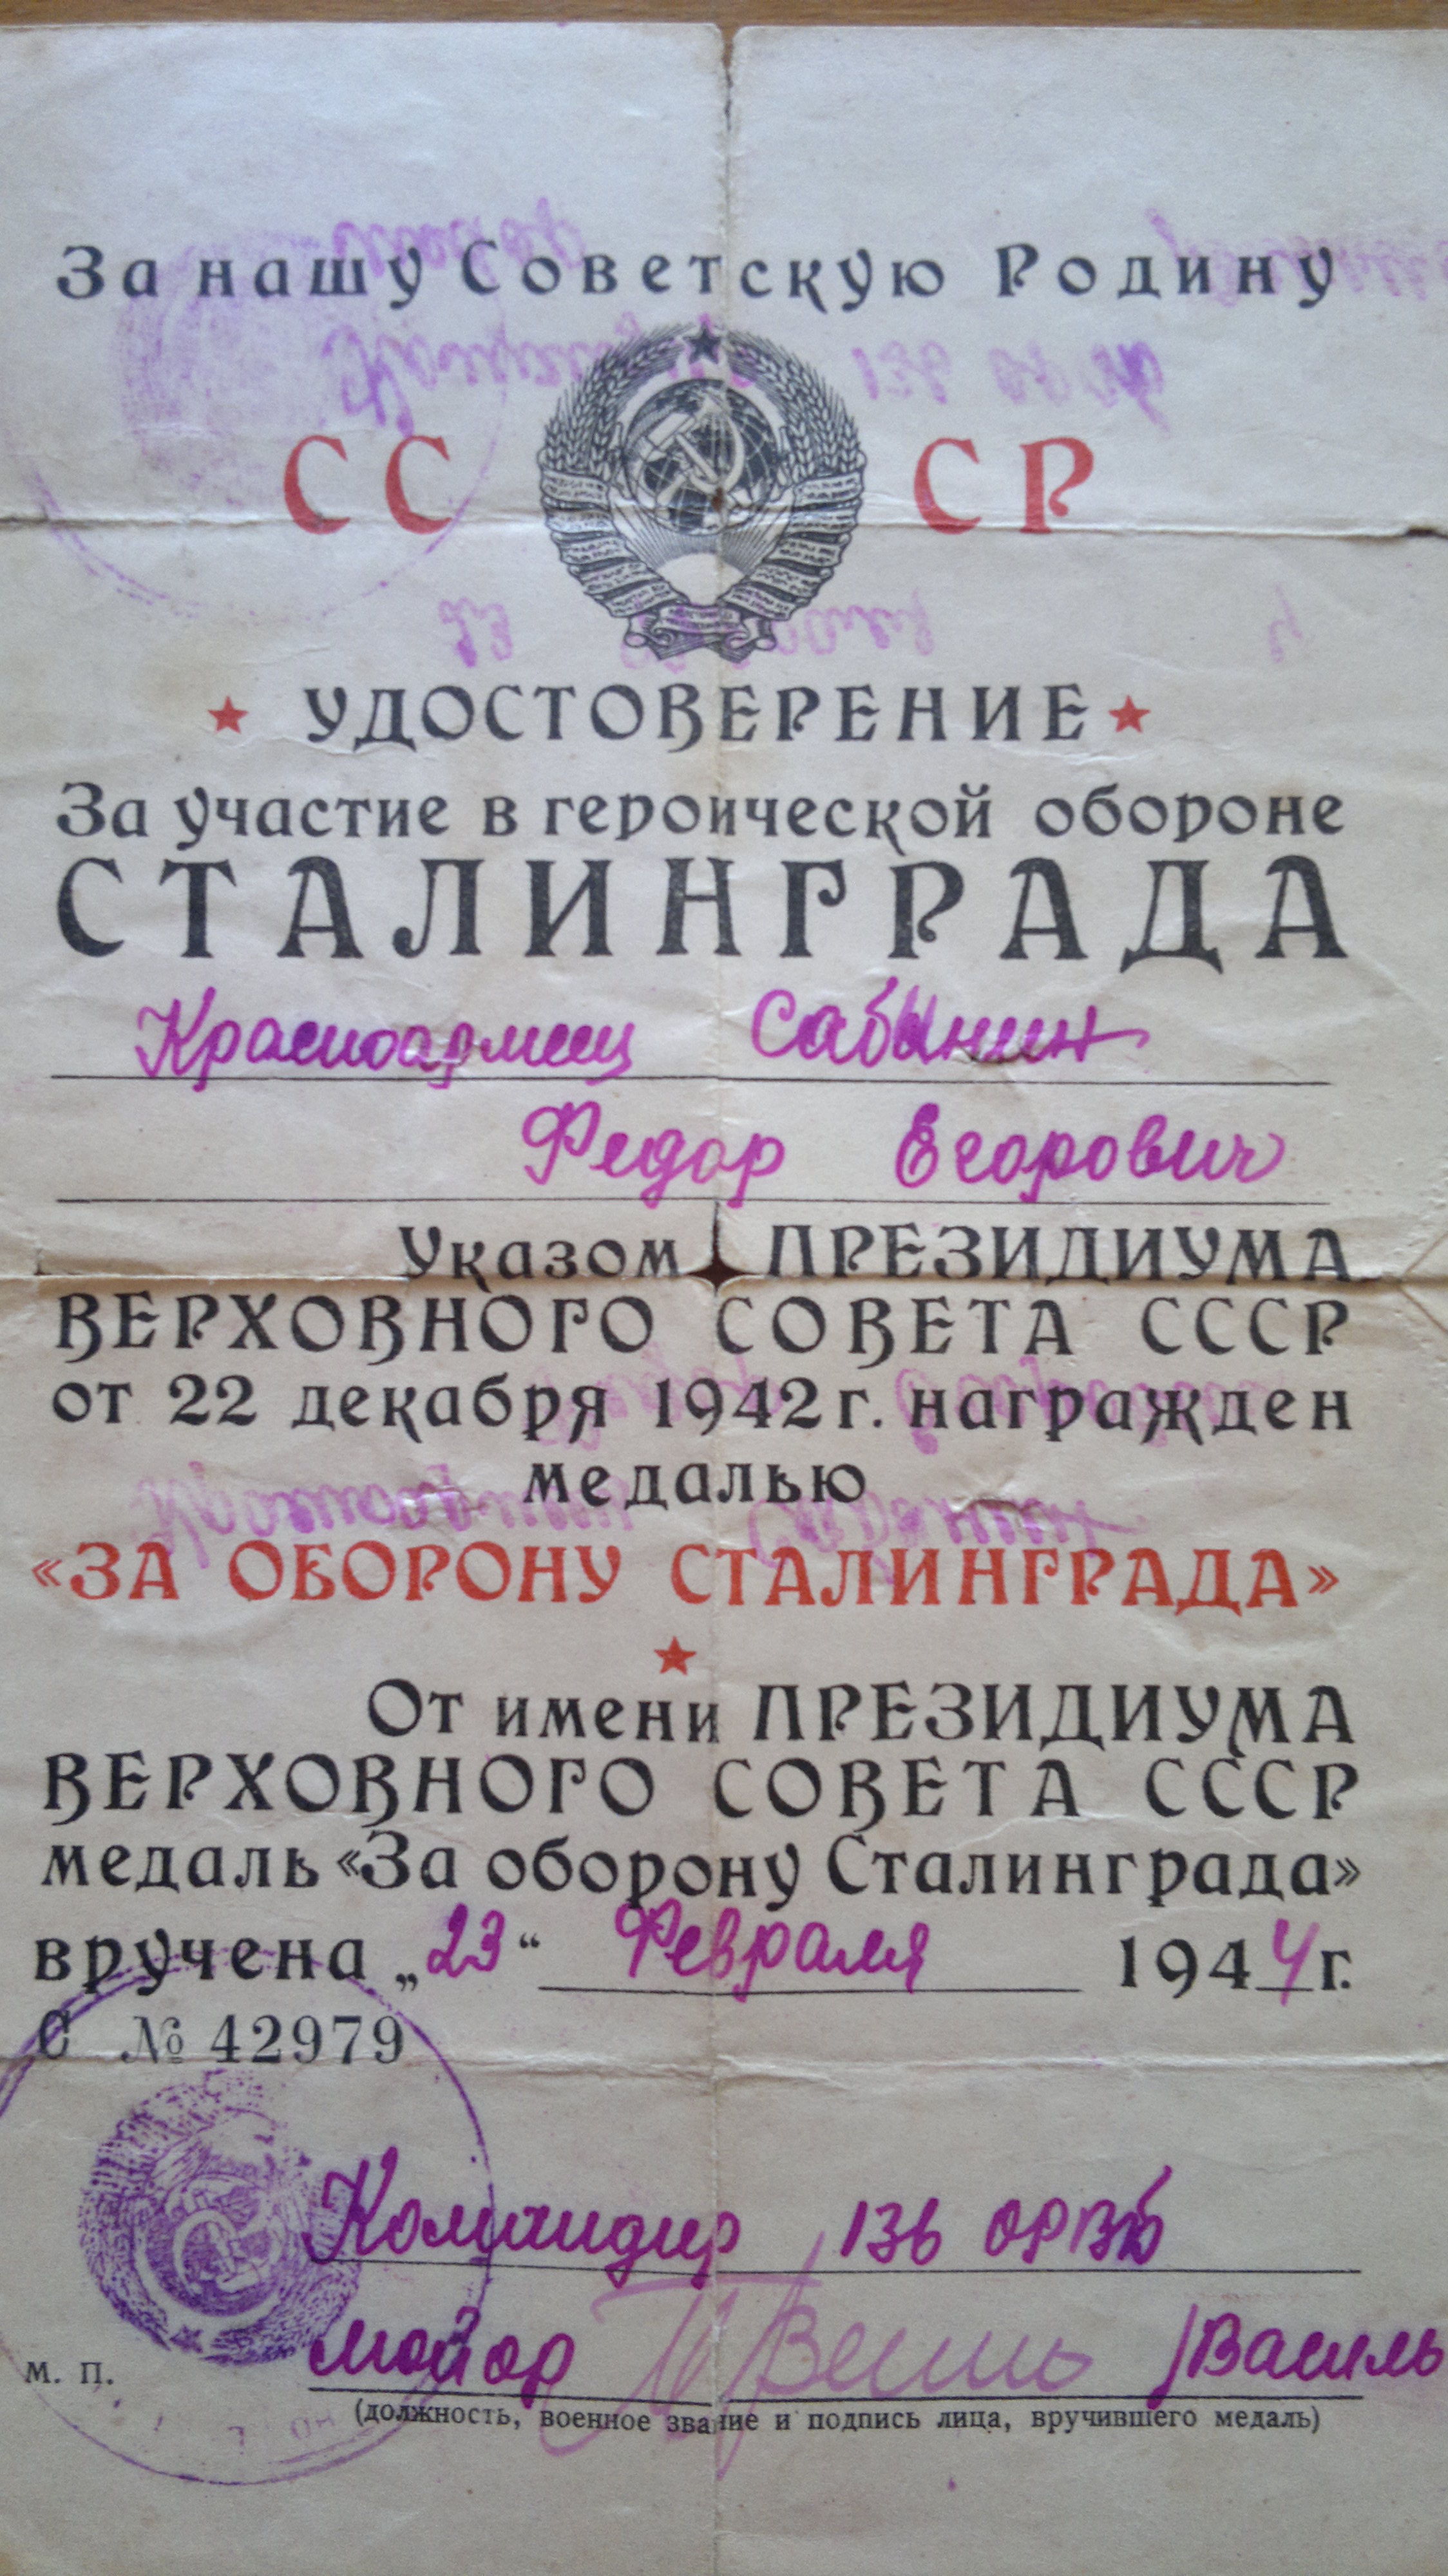 За нашу Советскую Родину
СССР
УДОСТОВЕРЕНИЕ
За участие в героической обороне
СТАЛИНГРАДА
Красноармеец Сабынин
Федор Егорович
Указом ПРЕЗИДИУМА
ВЕРХОВНОГО СОВЕТА СССР
от 22 декабря 1942 г. награжден
медалью
«ЗА ОБОРОНУ СТАЛИНГРАДА»
От имени ПРЕЗИДИУМА
ВЕРХОВНОГО СОВЕТА СССР
медаль «За оборону Сталинграда»
вручена „23“ Февраля 1944 г.
С № 42979
Командир 136
майор /Василь
М. П.
(должность, военное звание и подпись лица, вручившего медаль)